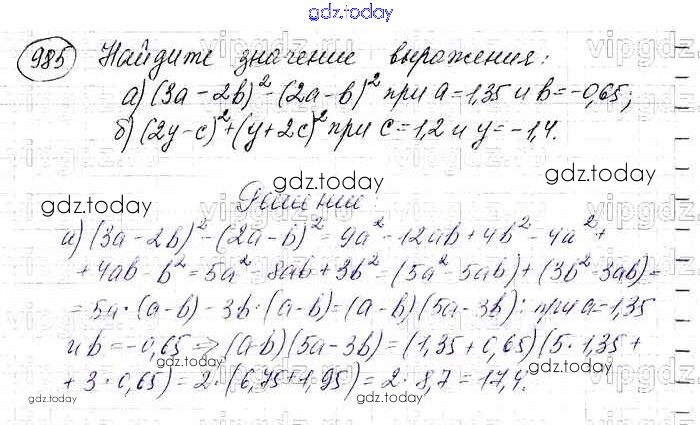 gdz.today
985 Найдите значение выражения:
а) (3a - 2b)² - (2a - b)² при a = 1,35 и b = -0,65;
б) (2y - c)² + (y + 2c)² при c = 1,2 и y = -1,4.
gdz.today
gdz.today
Решение:
а) (3a - 2b)² - (2a - b)² = 9a² - 12ab + 4b² - 4a² +
+ 4ab - b² = 5a² - 8ab + 3b² = (5a² - 5ab) + (3b² - 3ab) =
= 5a · (a - b) - 3b · (a - b) = (a - b)(5a - 3b); при a = 1,35
и b = -0,65 ⇒ (a - b)(5a - 3b) = (1,35 + 0,65)(5 · 1,35 +
+ 3 · 0,65) = 2 · (6,75 + 1,95) = 2 · 8,7 = 17,4.
gdz.today
gdz.today